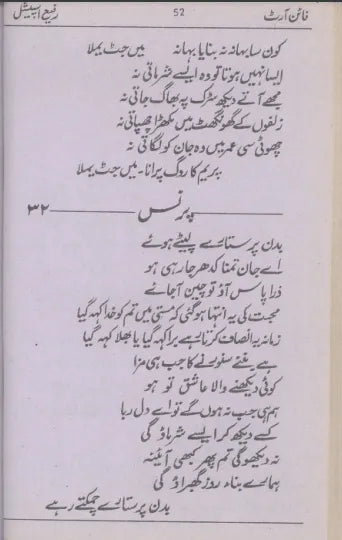 فائن آرٹ 52 رفیع اسپیشل
کون سا بہانہ نہ بنایا بہانہ میں جٹ یملا
ایسا نہیں ہوتا تو وہ ایسے شرماتی نہ
مجھے آتے دیکھ سڑک پہ بھاگ جاتی نہ
زلفوں کے گھونگھٹ میں مکھڑا چھپاتی نہ
چھوٹی سی عمر میں وہ جان کو لگاتی نہ
پریم کا روگ پرانا۔ میں جٹ یملا
پرنس ۳۲
بدن پر ستارے لپیٹے ہوئے
اے جان تمنا کدھر جا رہی ہو
ذرا پاس آؤ تو چین آجائے
محبت کی یہ انتہا ہو گئی کہ مستی میں تم کو خدا کہہ گیا
زمانہ یہ انصاف کرتا رہے برا کہہ گیا یا بھلا کہہ گیا
ہے بننے سنورنے کا جب ہی مزا
کوئی دیکھنے والا عاشق تو ہو
ہم ہی جب نہ ہوں گے تو اے دل ربا
کسے دیکھ کر ایسے شرماؤ گی
نہ دیکھو گی تم پھر کبھی آئینہ
ہمارے بناء روز گھبراؤ گی
بدن پر ستارے چمکتے رہے